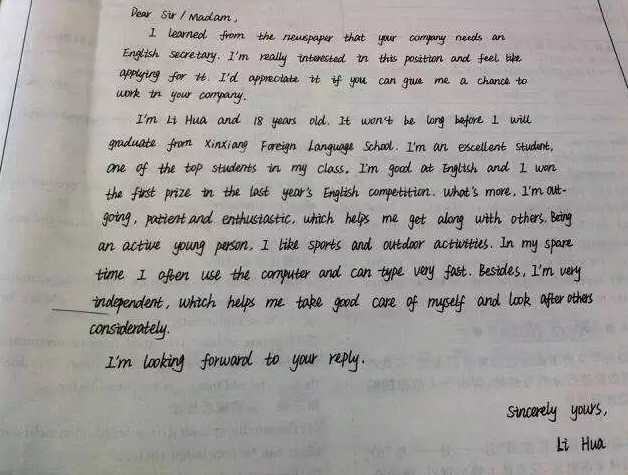 Dear Sir / Madam,
I learned from the newspaper that your company needs an
English secretary. I'm really interested in this position and feel like
applying for it. I'd appreciate it if you can give me a chance to
work in your company.
I'm Li Hua and 18 years old. It won't be long before I will
graduate from XinXiang Foreign Language School. I'm an escellent student,
one of the top students in my class. I'm good at English and I won
the first prize in the last year's English competition. What's more, I'm out-
going, patient and enthusiastic, which helps me get along with others. Being
an active young person, I like sports and outdoor activities. In my spare
time I often use the computer and can type very fast. Besides, I'm very
independent, which helps me take good care of myself and look after others
considerately.
I'm looking forward to your reply.
Sincerely yours,
Li Hua